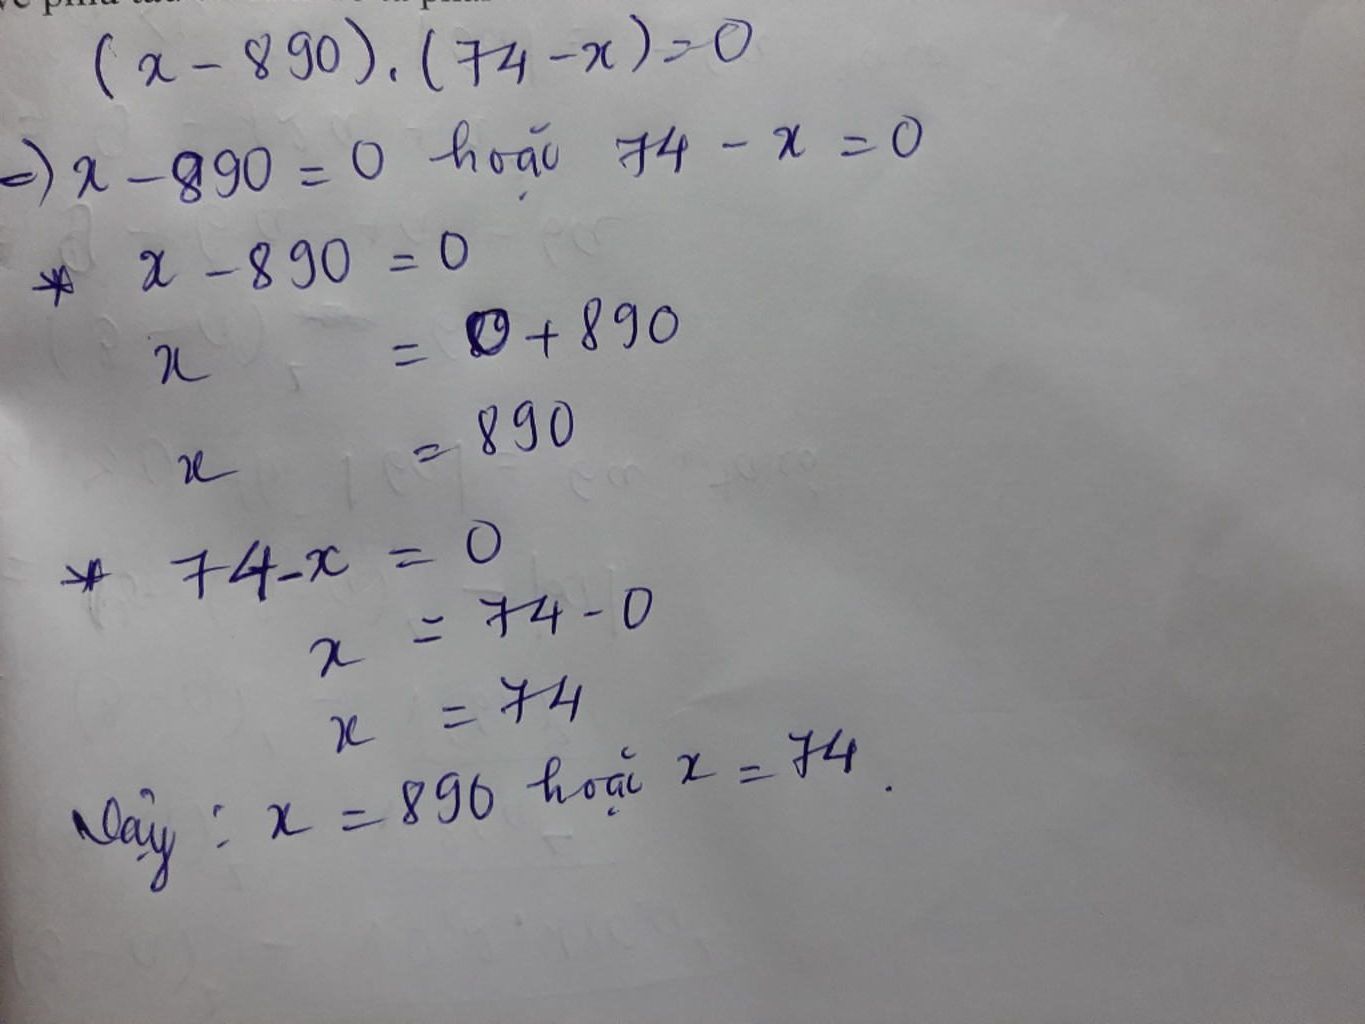 (x - 890).(74 - x) = 0
=) x - 890 = 0 hoặc 74 - x = 0
* x - 890 = 0
x = 0 + 890
x = 890
* 74 - x = 0
x = 74 - 0
x = 74
Vậy : x = 890 hoặc x = 74.